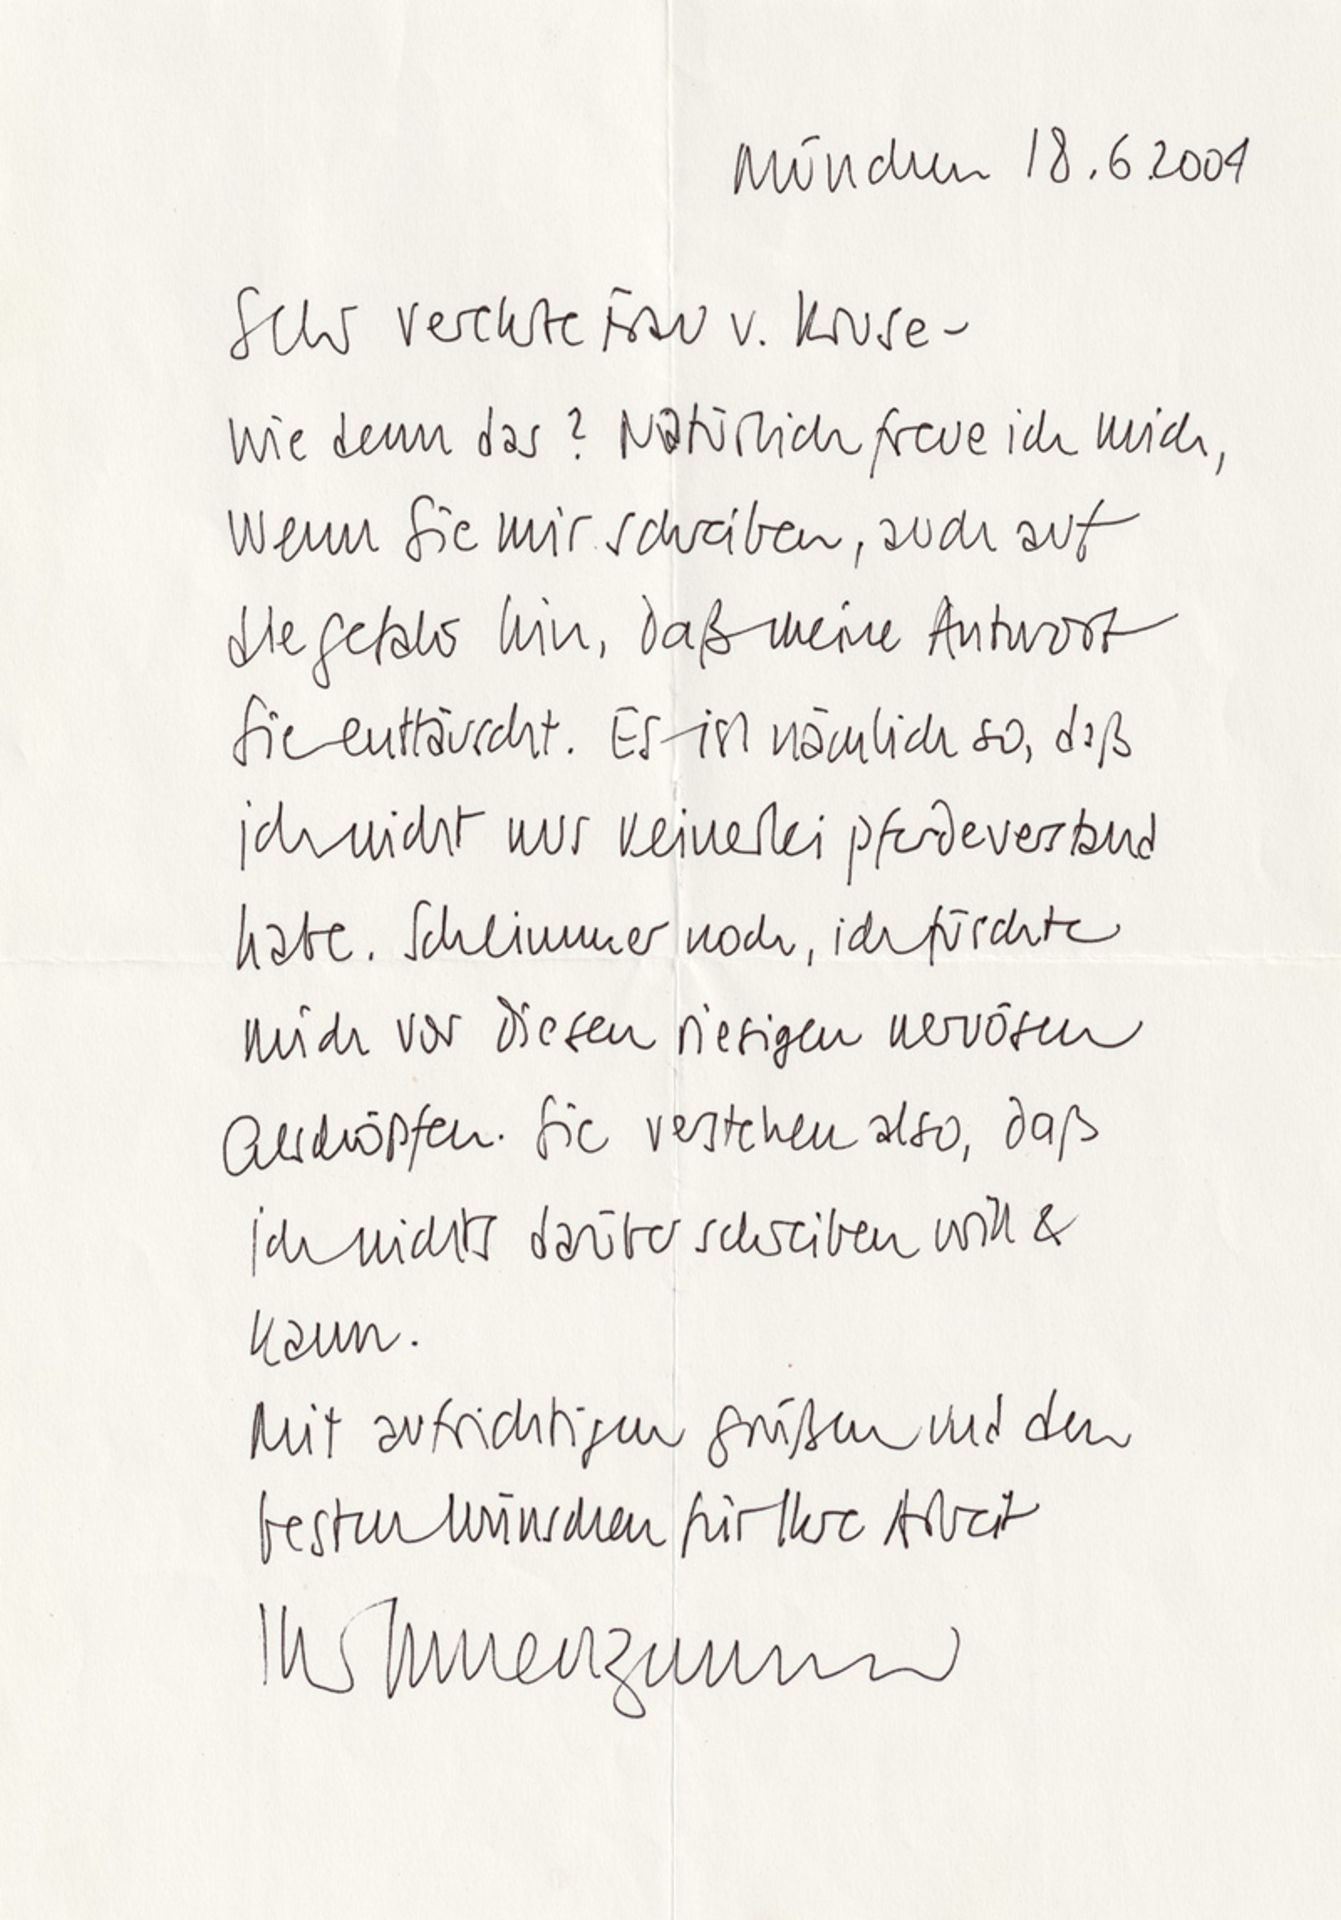 München 18.6.2001
Sehr verehrte Frau v. Kruse –
Wie denn das? Natürlich freue ich mich,
wenn Sie mir schreiben, auch auf
die Gefahr hin, daß meine Antwort
Sie enttäuscht. Es ist nämlich so, daß
ich nicht nur keinerlei Pferdeverstand
habe. Schlimmer noch, ich fürchte
mich vor diesen riesigen nervösen
Geschöpfen. Sie verstehen also, daß
ich nichts darüber schreiben will &
kann.
Mit aufrichtigen Grüßen und den
besten Wünschen für Ihre Arbeit
Ihr